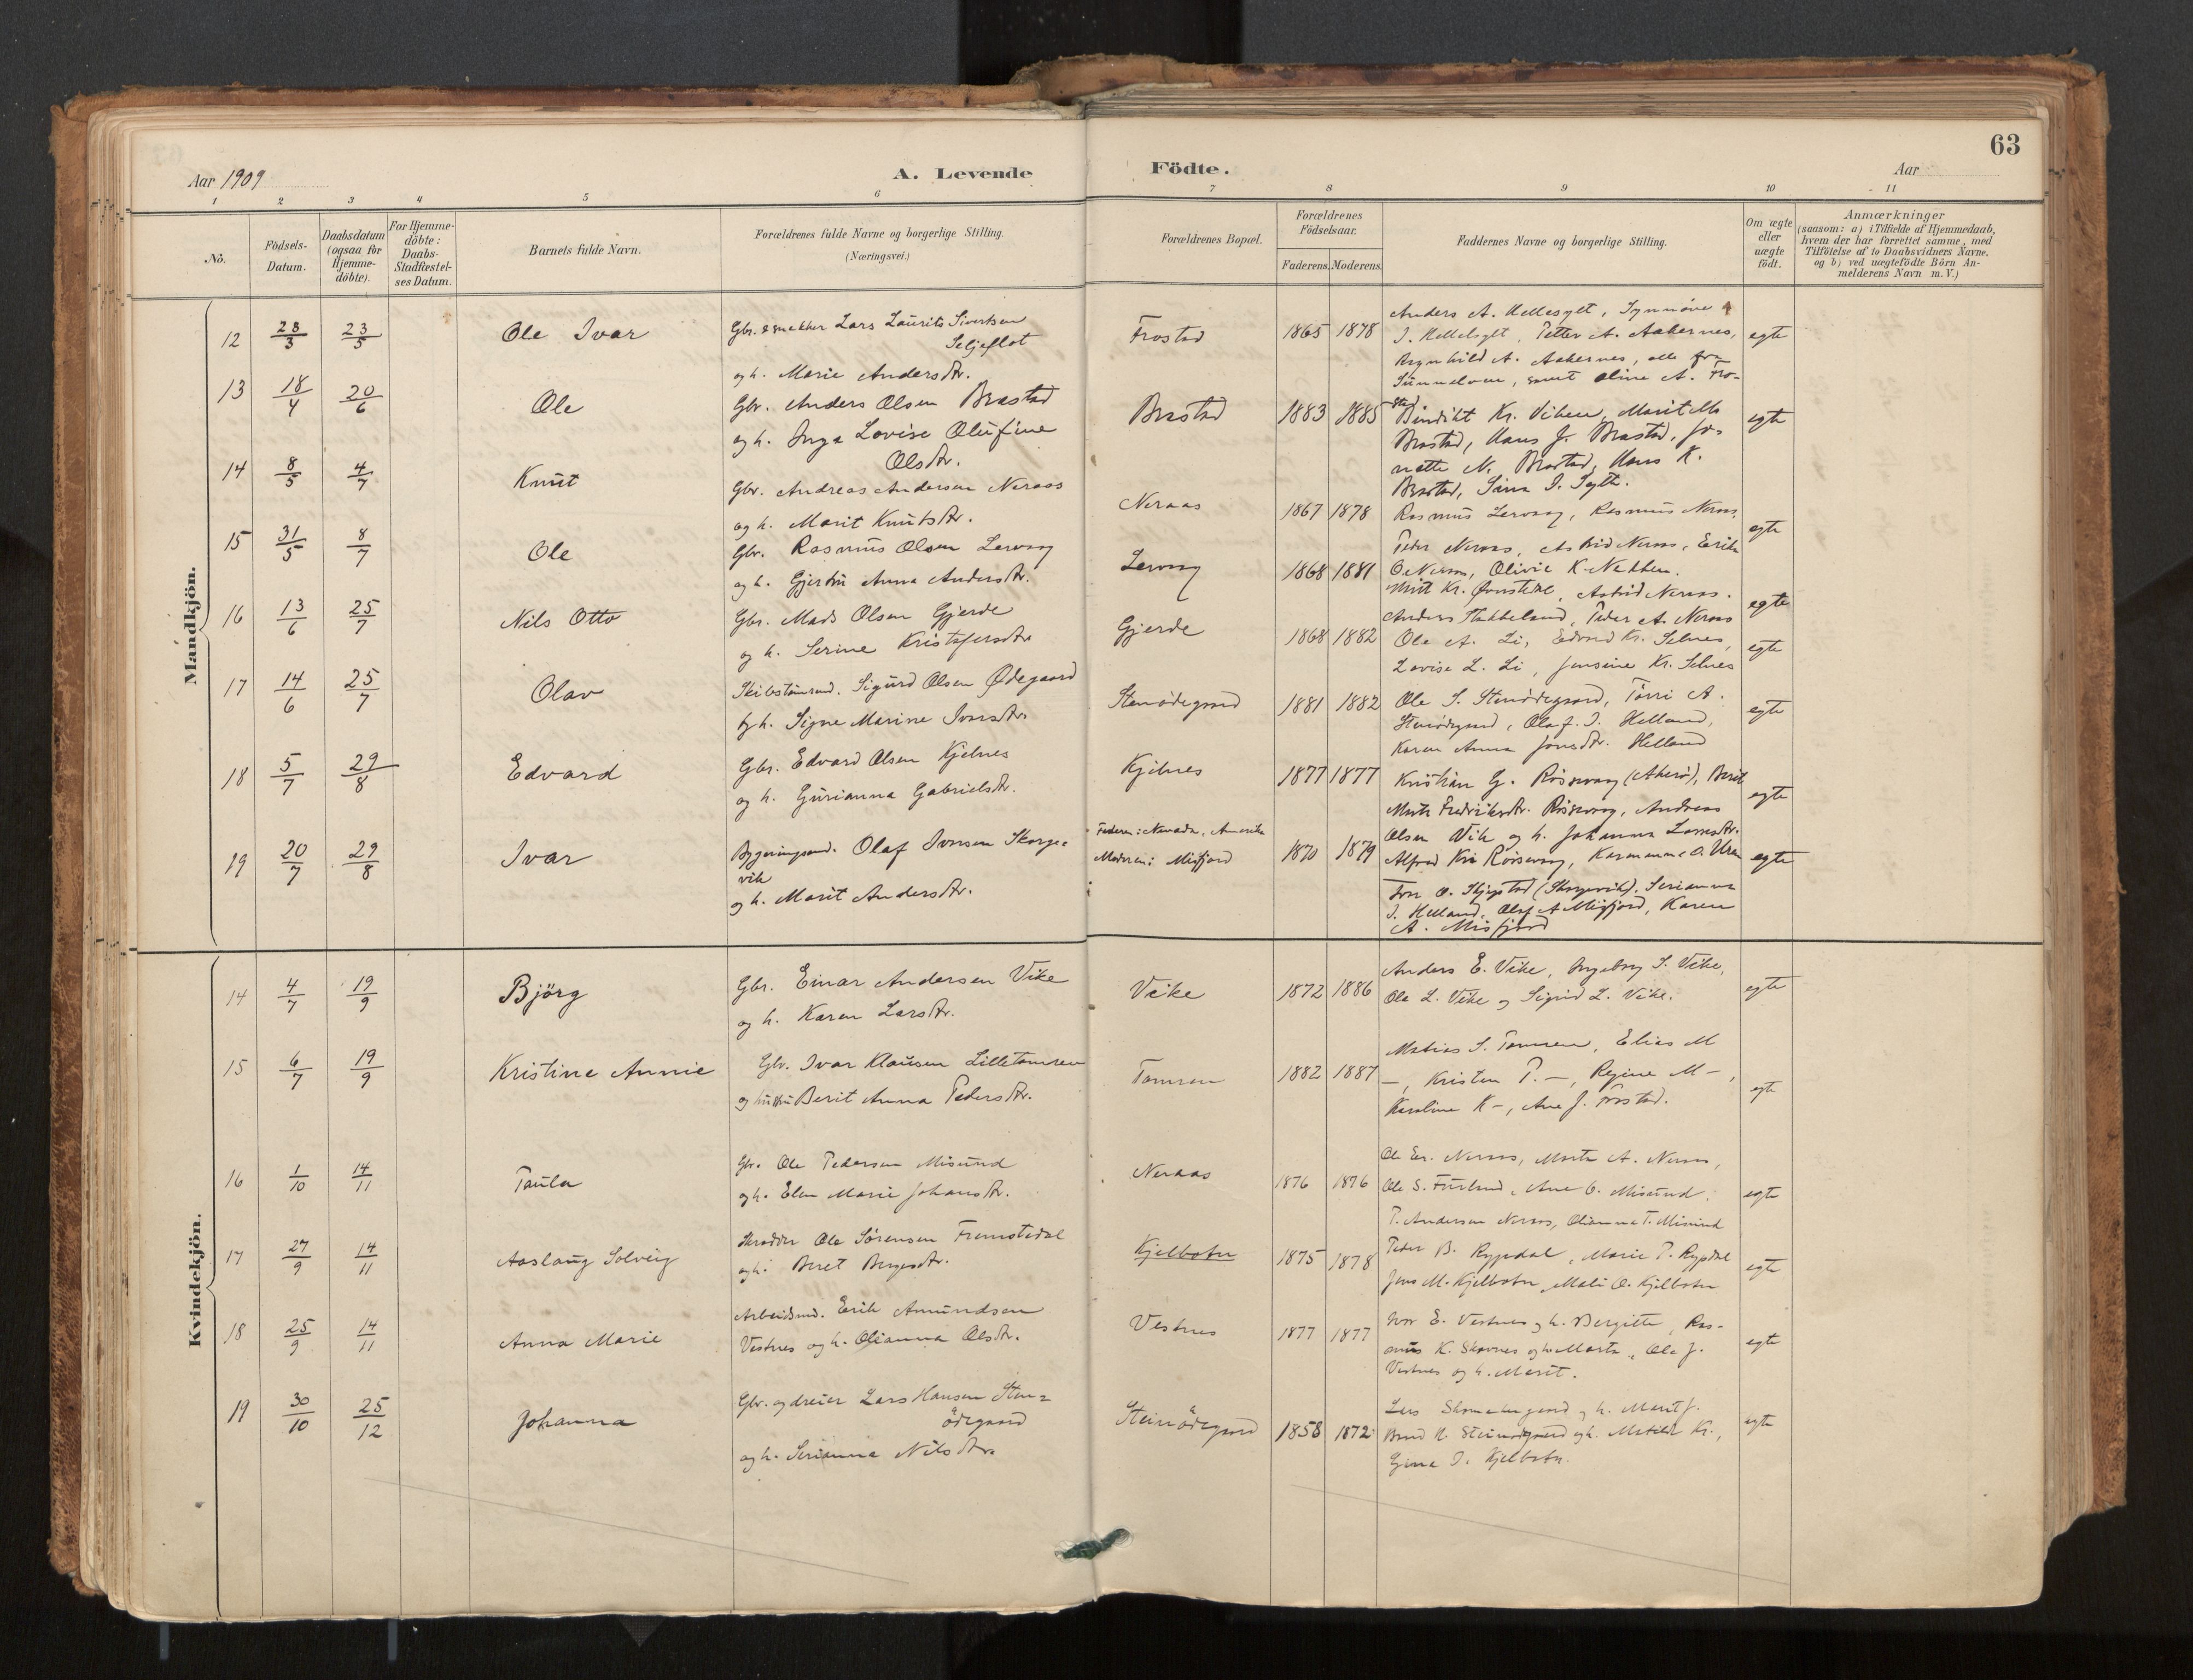 63
Aar 1909
A. Levende Födte.
Aar
1 2 3 4 5 6 7 8 9 10 11
No.
Födsels-Datum.
Daabsdatum (ogsaa for Hjemme-döbte).
For Hjemme-döbte: Daabs-Stadfæstel-ses Datum.
Barnets fulde Navn.
Forældrenes fulde Navne og borgerlige Stilling.
(Næringsvei.)
Forældrenes Bopæl.
Forældrenes Födselsaar.
Faderens. Moderens.
Faddernes Navne og borgerlige Stilling.
Om ægte eller uægte födt.
Anmærkninger
(saasom: a) i Tilfælde af Hjemmedaab, hvem der har forrettet samme, med Tilföielse af to Daabsvidners Navne, og b) ved uægtefödte Börn An-melderens Navn m. V.)
Mandkjön.
12 23/3 23/5 Ole Ivar
Gbr. & snekker Lars Laurits Sivertsen
Seljeflot
og h. Marie Andersdtr.
Frostad 1865 1878
Anders A. Hellesylt, Synnöve
J. Hellesylt, Petter A. Aakernes,
Ragnhild A. Aakernes, alle fra
Sunnelven, samt Oline A. Fro-
stad
egte
13 18/4 20/6 Ole
Gbr. Anders Olsen Brastad
og h. Inga Lovise Olufine
Olsdtr.
Brastad 1883 1885
Bendikt Kr. Viken, Marit M.
Brastad, Hans J. Brastad, Jo-
nette N. Brastad, Hans K.
Brastad, Sina I. Sylte.
egte
14 8/5 4/7 Knut
Gbr. Andreas Andersen Neraas
og h. Marit Knutsdtr.
Neraas 1867 1878
Rasmus Lervaag, Rasmus Neraas,
Peder Neraas, Astrid Neraas, Erik
O. Neraas, Olivie K. Nakken.
egte
15 31/5 8/7 Ole
Gbr. Rasmus Olsen Lervaag
og h. Gjertru Anna Andersdtr.
Lervaag 1868 1881
Kr. Øvstedal, Astrid Neraas.
Anders Stokkeland, Peder A. Neraas
egte
16 13/6 25/7 Nils Otto
Gbr. Mads Olsen Gjerde
og h. Serine Kristofersdtr
Gjerde 1868 1882
Ole A. Li, Edvard Kr. Selnes,
Lovise L. Li, Jensine Kr. Selnes
egte
17 14/6 25/7 Olav
Skibstömrmd. Sigurd Olsen Ødegaard
og h. Signe Marine Ivarsdtr
Stenödegaard 1881 1882
Ole S. Stenödegaard, Torri A.
Stenödegaard, Olaf J. Helland,
Karen Anna Jonsdtr. Helland
egte
18 5/7 29/8 Edvard
Gbr. Edvard Olsen Kjelnes
og h. Gurianna Gabrielsdtr.
Kjelnes 1877 1877
Kristian G. Rösevaag (Akerö), Berit
Marta Fredriksdtr. Rösevaag, Andreas
Olsen Vik og h. Johanna Larsdtr.
Alfred Kr. Rösevaag, Karenanna O. Uren
egte
19 20/7 29/8 Ivar
Bygningsmd. Olaf Iversen Skorge-
vik
og h. Marit Andersdtr.
Faderen: Nevada, Amerika
Moderen: Misfjord
1870 1879
Ivar O. Skjegstad (Skorgevik), Serianna
J. Helland, Olaf A Misfjord, Karen
A. Misfjord
egte
Kvindekjön.
14 4/7 19/9 Björg
Gbr. Einar Andersen Vike
og h. Karen Larsdtr.
Vike 1872 1886
Anders E. Vike, Ingeborg S. Vike,
Ole L. Vike og Sigrid L. Vike.
egte
15 6/7 19/9 Kristine Annie
Gbr. Ivar Klausen Lilletomren
og hustru Berit Anna Pedersdtr.
Tomren 1882 1887
Matias S. Tomren, Elias M
—, Kristen P. —, Regine M —,
Karoline K —, Ane J. Frostad.
egte
16 1/10 14/11 Paula
Gbr. Ole Pedersen Misund
og h. Elen Marie Johansdtr.
Neraas 1876 1876
Ole Er. Neraas, Marta A. Neraas,
Ole S. Furland, Ane O. Misund,
P. Andersen Neraas, Olianna T. Misund
egte
17 27/9 14/11 Aaslaug Solveig
Skrædder Ole Sörensen Fremstedal
og h. Beret Bergesdtr.
Kjelbotn 1875 1878
Peder B. Rypdal, Marie P. Rypdal
Jens M. Kjelbotn, Mali O. Kjelbotn
egte
18 25/9 14/11 Anna Marie
Arbeidsmd. Erik Amundsen
Vestnes og h. Olianna Olsdtr.
Vestnes 1877 1877
Ivar E. Vestnes og h. Bergitte, Ras-
mus K. Skovnes og h. Marta, Ole J.
Vestnes og h. Marit.
egte
19 30/10 25/12 Johanna
Gbr. og dreier Lars Hansen Sten-
ödegaard
og h. Serianna Nilsdtr.
Steinödegaard 1858 1872
Lars Skomakergaard og h. Marit J.
N. Steinödegaard og h. Matilde Kr.,
Gina I. Kjelbotn.
egte